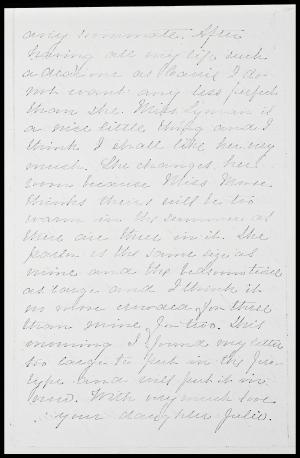 any roommate. After
having all my life such
a dear one as I do
not want any less perfect
than she. Miss Lyman is
a nice little thing and I
think I shall like her very
much. She changes her
room because Miss
thinks theirs will be too
warm in the summer as
there are three in it. The
parlor is the same size as
mine and the bedroom twice
as large and I think it
no more crowded for three
than mine for two. This
morning I found my letter
too large to put in the
and will put it in
now. With very much love
your daughter Julie.